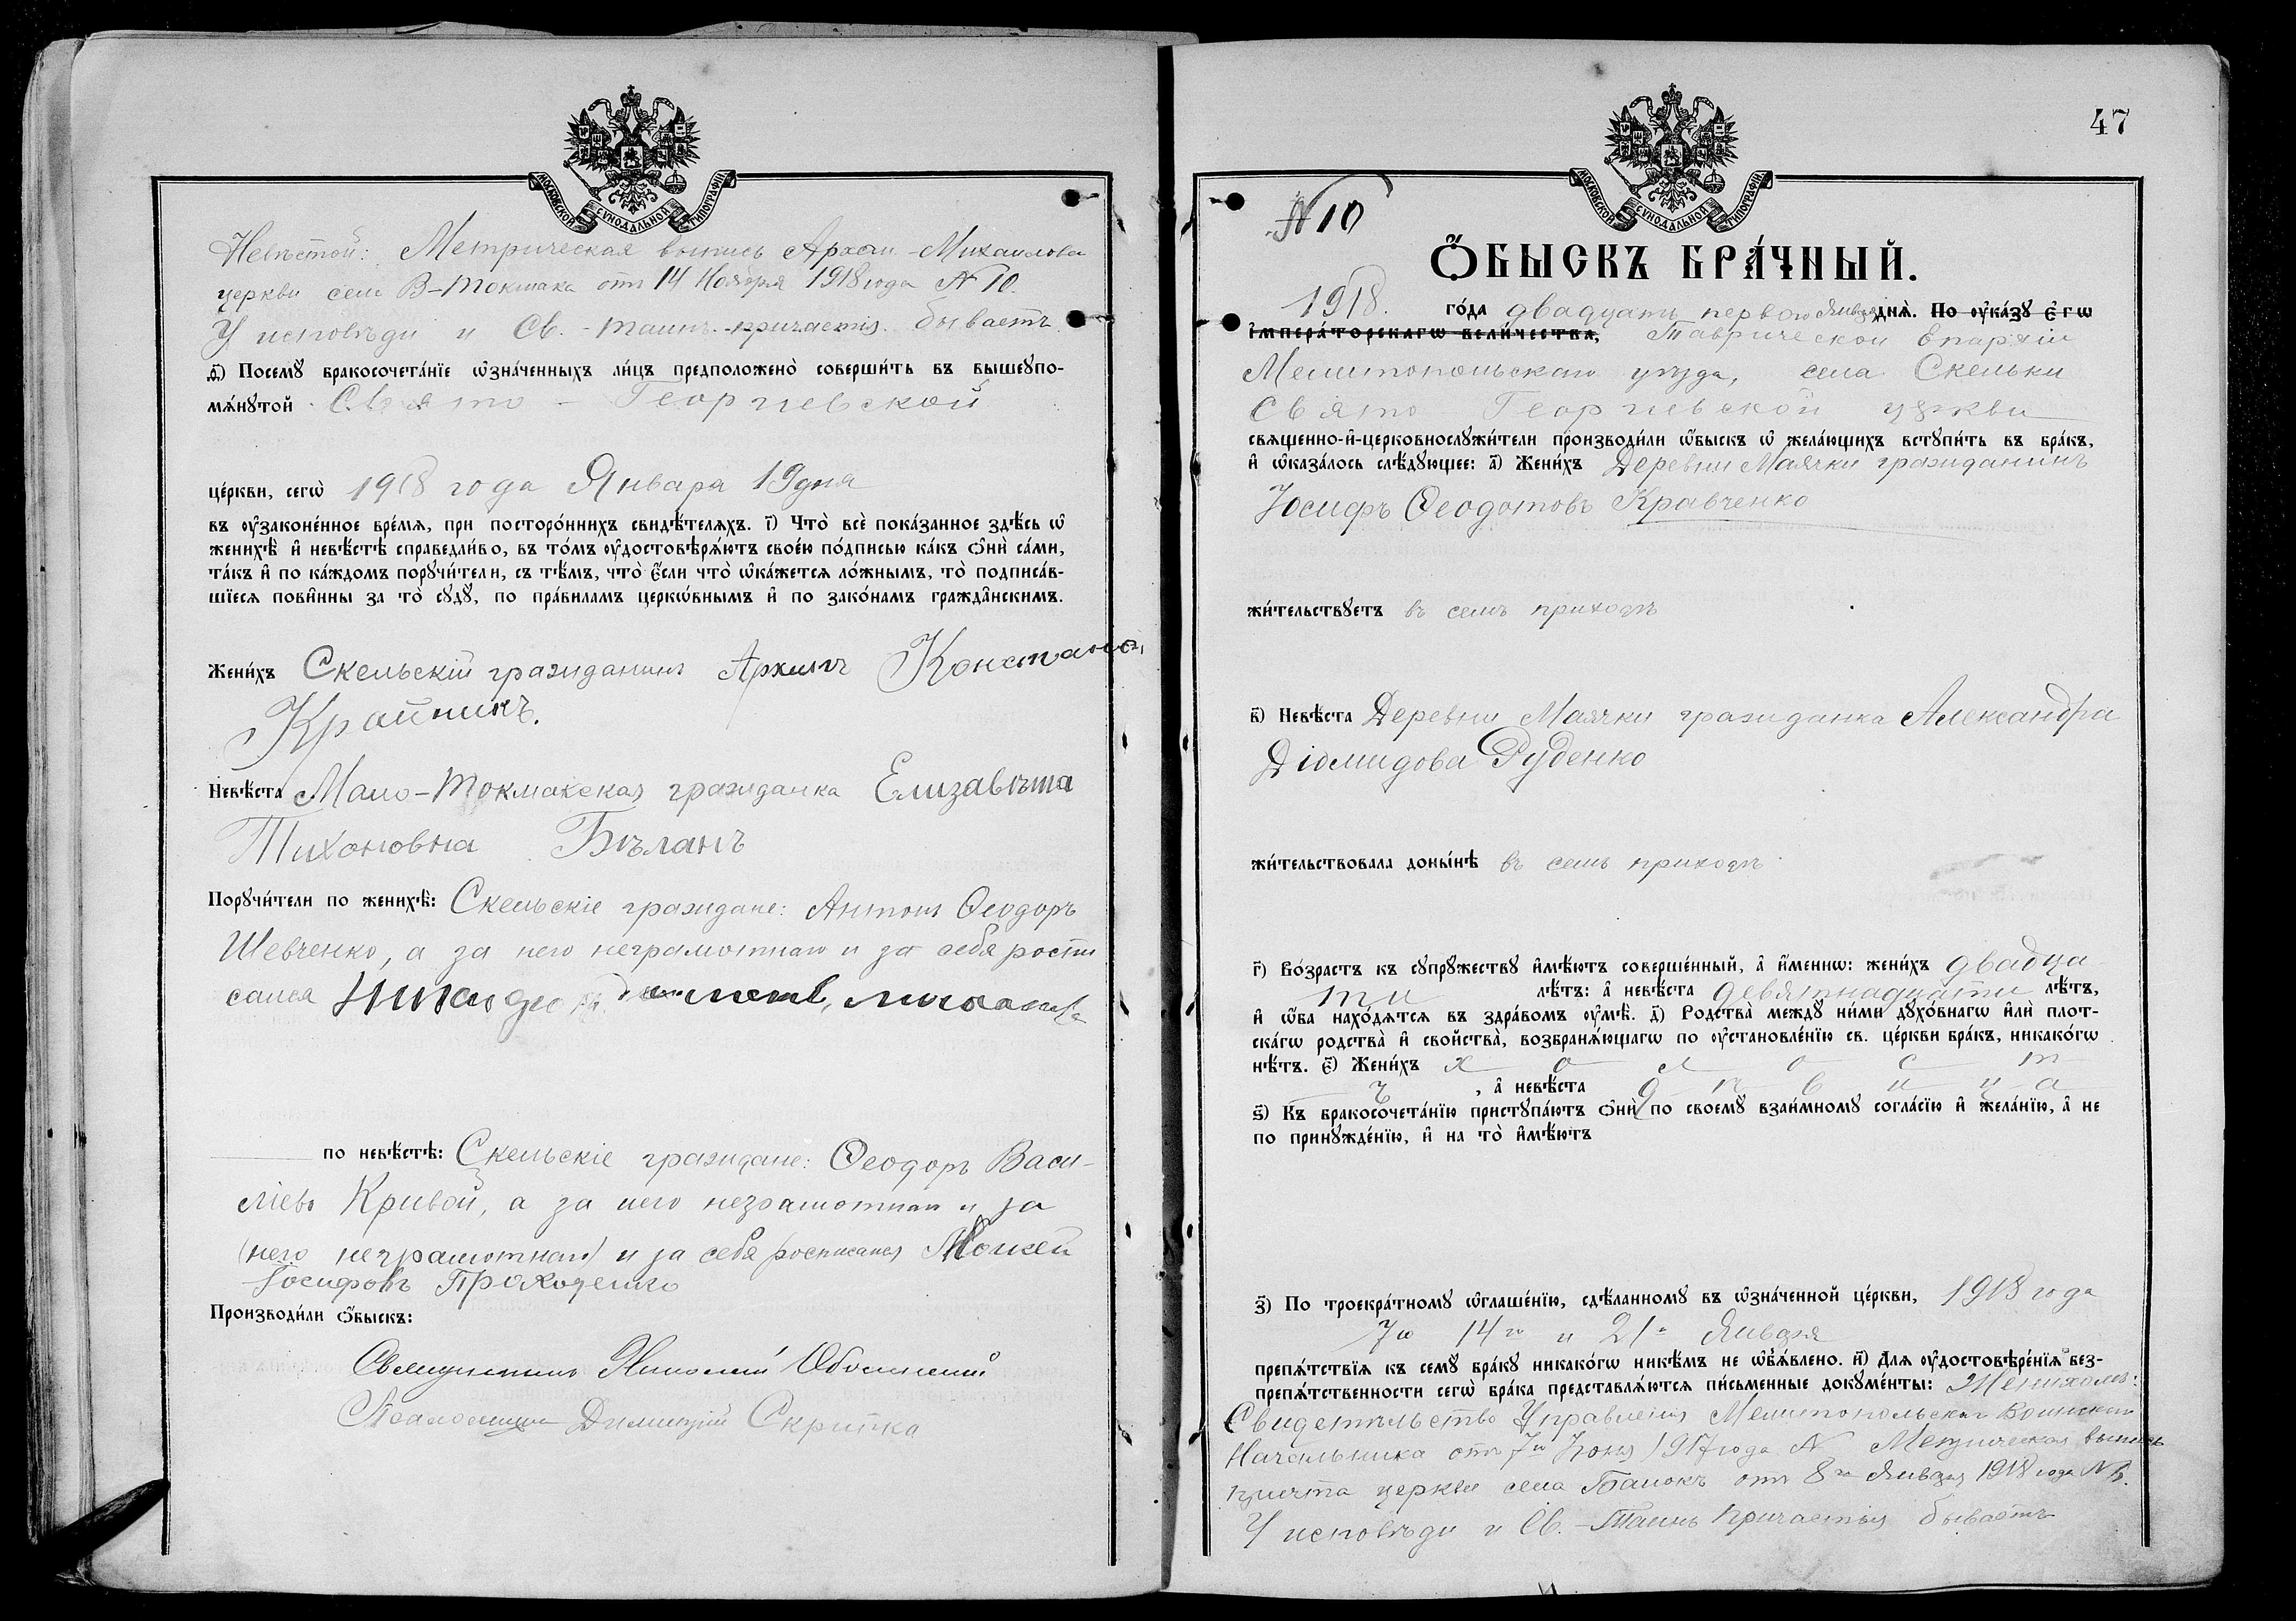 МОСКОВСКОЙ СѴНОДАЛЬНОЙ ТИПОГРАФІИ
Невѣстой: Метрическая выпись Архом-Михаилова
церкви села В-Токмака отъ 14 Ноября 1918 года № 10.
У исповѣди и Св.-таинъ причастія бываетъ
ѳ҃) Посемꙋ̀ бракосочета́нїе ѡ҆зна́ченныхъ ли́цъ предположено̀ соверши́ть въ вышеꙋпо-
мѧ́нꙋтой Свято-Георгіевской
це́ркви, сегѡ̀ 1918 года Января 19 дня
въ ᲂу҆законе́нное вре́мѧ, при посторо́ннихъ свидѣ́телѧхъ. і҃) Что̀ всѐ пока́занное здѣ́сь ѡ҆
женихѣ̀ и҆ невѣ́стѣ справедли́во, въ то́мъ ᲂу҆достовѣрѧ́ютъ свое́ю по́дписью ка́къ ѻ҆нѝ са́ми,
та́къ и҆ по ка́ждомъ порꙋчи́тели, съ тѣ́мъ, что̀ є҆́сли что̀ ѡ҆ка́жетсѧ ло́жнымъ, то̀ подписа́в-
шїесѧ пови́нны за то̀ сꙋдꙋ̀, по пра́виламъ церко́внымъ и҆ по зако́намъ гражда́нскимъ.
Жени́хъ Скельскій гражданинъ Архипъ
Крайникъ.
Невѣ́ста Мало-Токмакская гражданка Елизавѣта
Тихоновна Бѣланъ
Порꙋчи́тели по женихѣ̀: Скельскіе граждане: Антонъ Ѳеодоръ
Шевченко, а за него неграмотнаго и за себя роспи
сался
по невѣ́стѣ: Скельскіе граждане: Ѳеодоръ Васи-
ліевъ Кривой, а за него неграмотнаго и за
(него неграмотнаго) и за себя росписался Мокей
Іосифовъ Проходенко
Производи́ли ѻ҆́быскъ:
Священникъ Николай
Псаломщикъ Димитрій Скрипка
47
МОСКОВСКОЙ СѴНОДАЛЬНОЙ ТИПОГРАФІИ
№ 10
Ѻ҆́БЫСКЪ БРА́ЧНЫЙ.
1918. го́да двадцать перваго Января днѧ̀. По ᲂу҆ка́зꙋ є҆гѡ̀
и҆мпера́торскагѡ вели́чества, Таврической Епархіи
Мелитопольскаго уѣзда, села Скельки
Свято Георгіевской церкви
свѧщенно-и҆-церковнослꙋжи́тели производи́ли ѻ҆́быскъ ѡ҆ жела́ющихъ встꙋпи́ть въ бра́къ,
и҆ ѡ҆каза́лось слѣ́дꙋющее: а҃) Жени́хъ Деревни Маячки гражданинъ
Іосифъ Ѳеодотовъ Кравченко
жи́тельствꙋетъ въ семъ приходѣ
в҃) Невѣ́ста Деревни Маячки гражданка Александра
Діомидова Руденко
жи́тельствовала доны́нѣ въ семъ приходѣ
г҃) Во́зрастъ къ сꙋпрꙋ́жествꙋ и҆мѣ́ютъ соверше́нный, а҆ и҆́меннѡ: жени́хъ двадца
ти лѣ́тъ: а҆ невѣ́ста девятнадцати лѣ́тъ,
и҆ ѻ҆́ба нахо́дѧтсѧ въ здра́вомъ ᲂу҆мѣ̀. д҃) Родства̀ междꙋ̀ ни́ми дꙋхо́внагѡ и҆лѝ плот-
ска́гѡ родства̀ и҆ сво́йства, возбранѧ́ющагѡ по ᲂу҆становле́нїю св. це́ркви бра́къ, никако́гѡ
нѣ́тъ. є҃) Жени́хъ холост
ъ, а҆ невѣ́ста дѣвица
ѕ҃) Къ бракосочета́нїю пристꙋпа́ютъ ѻ҆нѝ по своемꙋ̀ взаи́мномꙋ согла́сїю и҆ жела́нїю, а҆ не
по принꙋжде́нїю, и҆ на то̀ и҆мѣ́ютъ
з҃) По троекра́тномꙋ ѡ҆глаше́нїю, сдѣ́ланномꙋ въ ѡ҆зна́ченной це́ркви, 1918 года
7го 14го и 21го Января
препѧ́тствїѧ къ семꙋ̀ бра́кꙋ никако́гѡ никѣ́мъ не ѡ҆б̾ѧ́влено. и҃) Длѧ ᲂу҆достовѣре́нїѧ без-
препѧ́тственности сегѡ̀ бра́ка представлѧ́ютсѧ пи́сьменные докꙋме́нты: Женихомъ:
Свидетельство Управленія Мелитопольскаго Воинскаго
Начальника отъ 7го Іюня 1917 года № Метрическая выпись
причта церкви села Балокъ отъ 8го Января 1918 года №
У исповѣди и Св.-Таинъ Причастія бываетъ